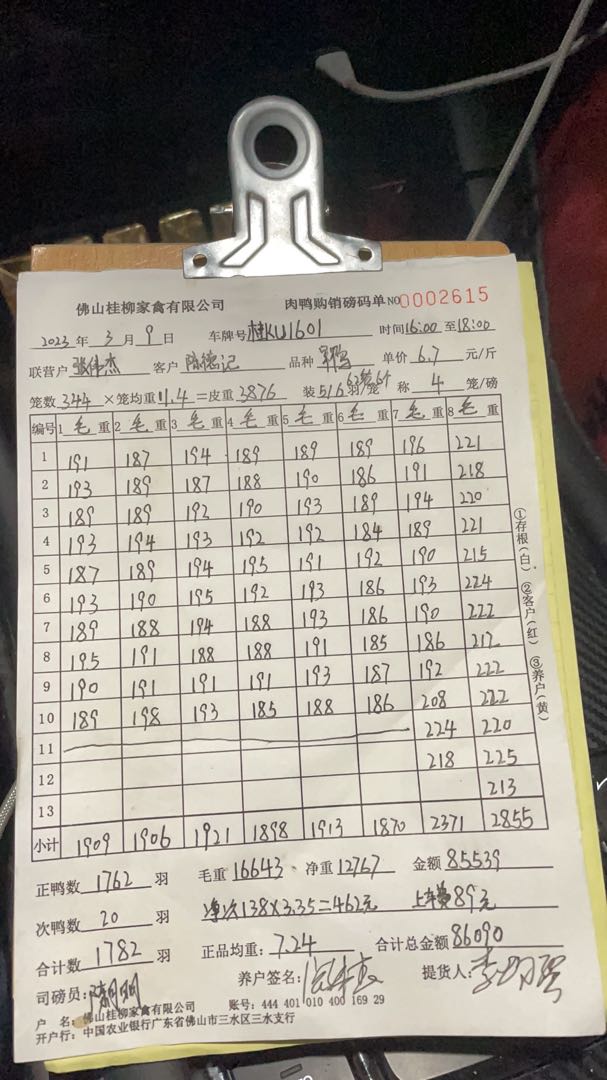 佛山桂柳家禽有限公司 肉鸭购销磅码单 NO 0002615
2023 年 3 月 9 日 车牌号 桂KU1601 时间 16:00 至 18:00
联营户 张伟杰 客户 陈德记 品种 单价 6.7 元/斤
笼数 344 ×笼均重 11.4 =皮重 3876 装 5/6 羽/笼 称 4 笼/磅
编号 1 毛 重 2 毛 重 3 毛 重 4 毛 重 5 毛 重 6 毛 重 7 毛 重 8 毛 重
1 191 187 194 189 189 189 196 221
2 193 189 187 188 190 186 191 218
3 189 189 192 190 193 189 194 220
4 193 194 193 192 192 184 189 221
5 187 189 194 195 191 192 190 215
6 193 190 195 192 193 186 193 224
7 189 188 194 188 193 186 190 222
8 195 191 188 188 191 185 186 212
9 190 191 191 191 193 187 192 222
10 189 198 193 185 188 186 208 222
11 224 220
12 218 225
13 213
小计 1909 1906 1921 1898 1913 1870 2371 2855
①存根(白) ②客户(红) ③养户(黄)
正鸭数 1762 羽 毛重 16643 、净重 12767 金额 85539
次鸭数 20 羽 净次 138×3.35=462元 上车费89元
合计数 1782 羽 正品均重: 7.24 合计总金额 86090
司磅员: 养户签名: 提货人:
户 名: 佛山桂柳家禽有限公司 账号: 444 401 010 400 169 29
开户行: 中国农业银行广东省佛山市三水区三水支行